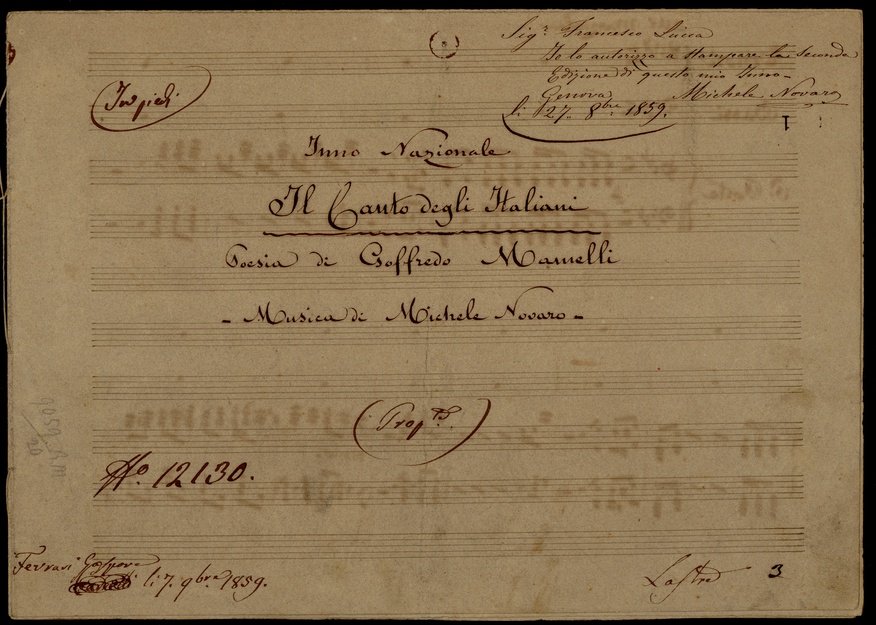 Sig.r Francesco Lucca
Io lo autorizzo a stampare la seconda
Edizione di questo mio Inno-
Genova Michele Novaro
li 27. 8bre 1859.
In piedi
1
Inno Nazionale
Il Canto degli Italiani
Poesia di Goffredo Mamelli
- Musica di Michele Novaro -
(Prop.tà)
No. 12130.
Ferrari Gaspare
li 7. 9bre 1859.
Lastre 3